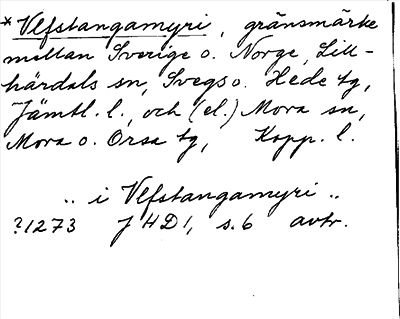 * Vefstangamyri, gränsmärke
mellan Sverige o. Norge, Lill-
härdals sn, Svegs o. Hede tg,
Jämtl. l., och (el.) Mora sn,
Mora o. Orsa tg, Kopp. l.
.. i Vefstangamyri ..
?1273 JHD1, s. 6 avtr.